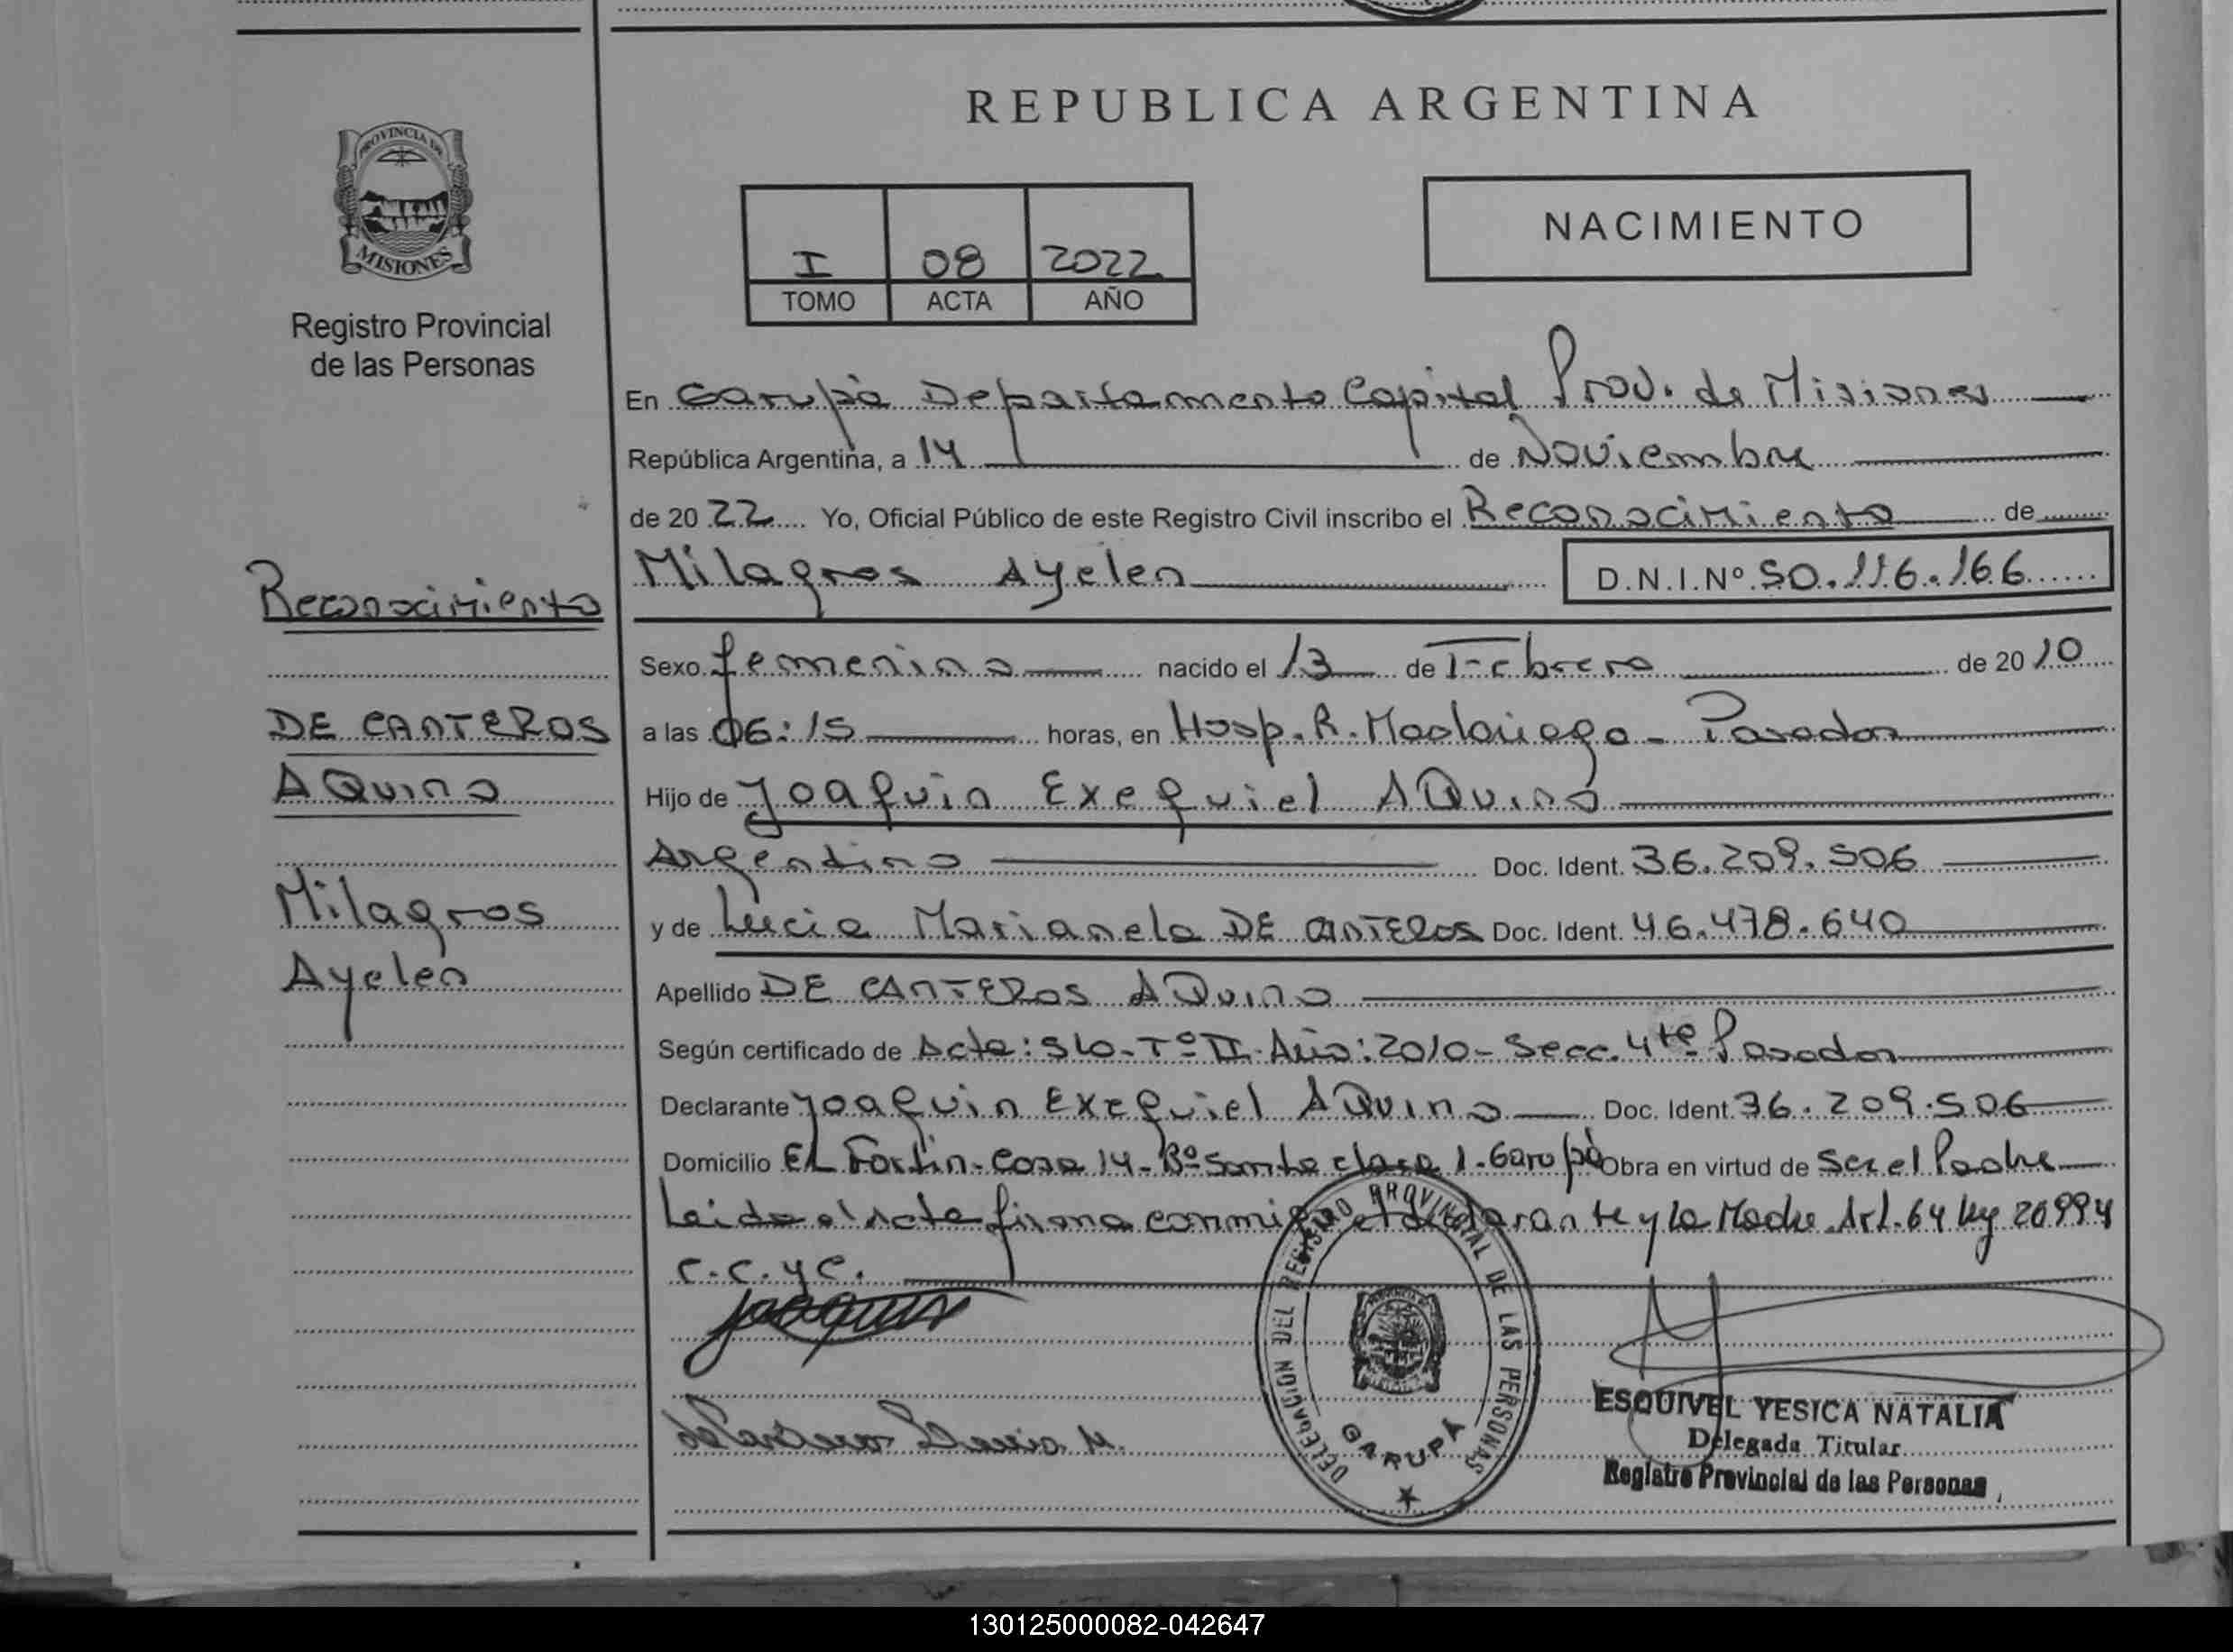 REPUBLICA ARGENTINA
PROVINCIA DE
MISIONES
Registro Provincial
de las Personas
I 08 2022
TOMO ACTA AÑO
NACIMIENTO
Reconocimiento
DE CANTEROS
AQuino
Milagros
Ayelen
En Garupá Departamento Capital Prov. de Misiones
República Argentina, a 14 de Noviembre
de 2022 Yo, Oficial Público de este Registro Civil inscribo el Reconocimiento de
Milagros Ayelen D.N.I.Nº 50.116.166
Sexo femenino nacido el 13 de Febrero de 2010
a las 06:15 horas, en Hosp. R. Madariaga - Posadas
Hijo de Joaquin Exequiel AQuino
Argentino Doc. Ident. 36.209.506
y de Lucia Marianela DE CANTEROS Doc. Ident. 46.478.640
Apellido DE CANTEROS AQuino
Según certificado de Acta: 510- Tº II- Año: 2010- Secc. 4ta Posadas
Declarante Joaquin Exequiel AQuino Doc. Ident. 36.209.506
Domicilio EL Fortin- Casa 14- Bº Santa Clara 1- Garupá Obra en virtud de Ser el Padre
Leida el Acta firma conmigo el declarante y la Madre Art. 64 ley 26994
C.C.y C.
DELEGACION DEL REGISTRO PROVINCIAL DE LAS PERSONAS
GARUPA
ESQUIVEL YESICA NATALIA
Delegada Titular
Registro Provincial de las Personas
130125000082-042647